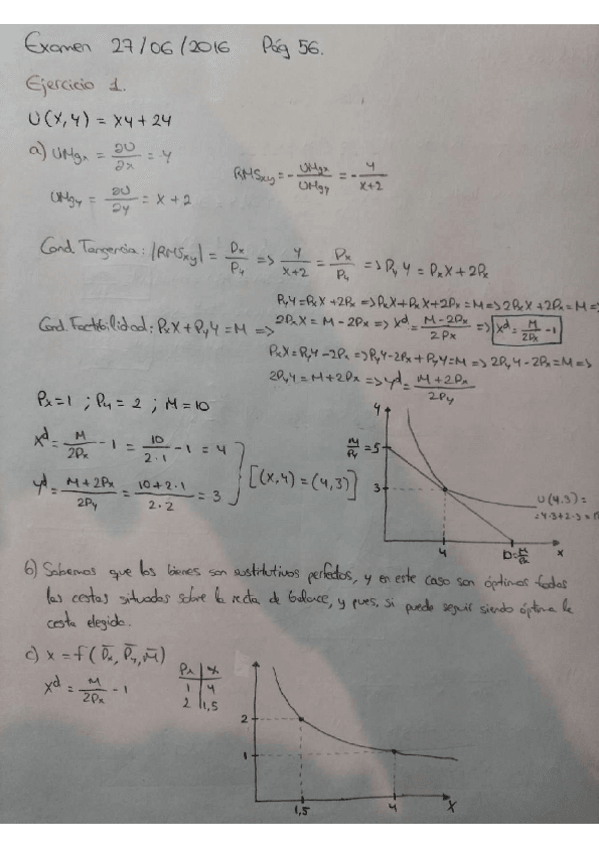 Examen 27/06/2016 Pág 56.
Ejercicio 1.
U(x,y) = xy + 2y
a) UMgx = ∂U/∂x = y
RMSxy = - UMgx/UMgy = - y/(x+2)
UMgy = ∂U/∂y = x + 2
Cond. Tangencia: |RMSxy| = Px/Py => y/(x+2) = Px/Py => Py y = Px x + 2Px
Py y = Px x + 2Px => Px x + Px x + 2Px = M => 2Px x + 2Px = M =>
Cond. Factibilidad: Px x + Py y = M => 2Px x = M - 2Px => x^d = (M - 2Px)/2Px => x^d = M/2Px - 1
Px x = Py y - 2Px => Py y - 2Px + Py y = M => 2Py y - 2Px = M =>
2Py y = M + 2Px => y^d = (M + 2Px)/2Py
Px = 1 ; Py = 2 ; M = 10
x^d = M/2Px - 1 = 10/2·1 - 1 = 4
y^d = (M + 2Px)/2Py = (10 + 2·1)/2·2 = 3
[(x,y) = (4,3)]
y
M/Py = 5
3
U(4,3) =
= 4·3 + 2·3 =
4
10 = M/Px
x
b) Sabemos que los bienes son sustitutivos perfectos, y en este caso son óptimas todas
las cestas situadas sobre la recta de balance, y pues, si puede seguir siendo óptima la
cesta elegida.
c) x = f(P̄x, P̄y, M̄)
x^d = M/2Px - 1
Px x
1 4
2 1,5
2
1
1,5
4
x